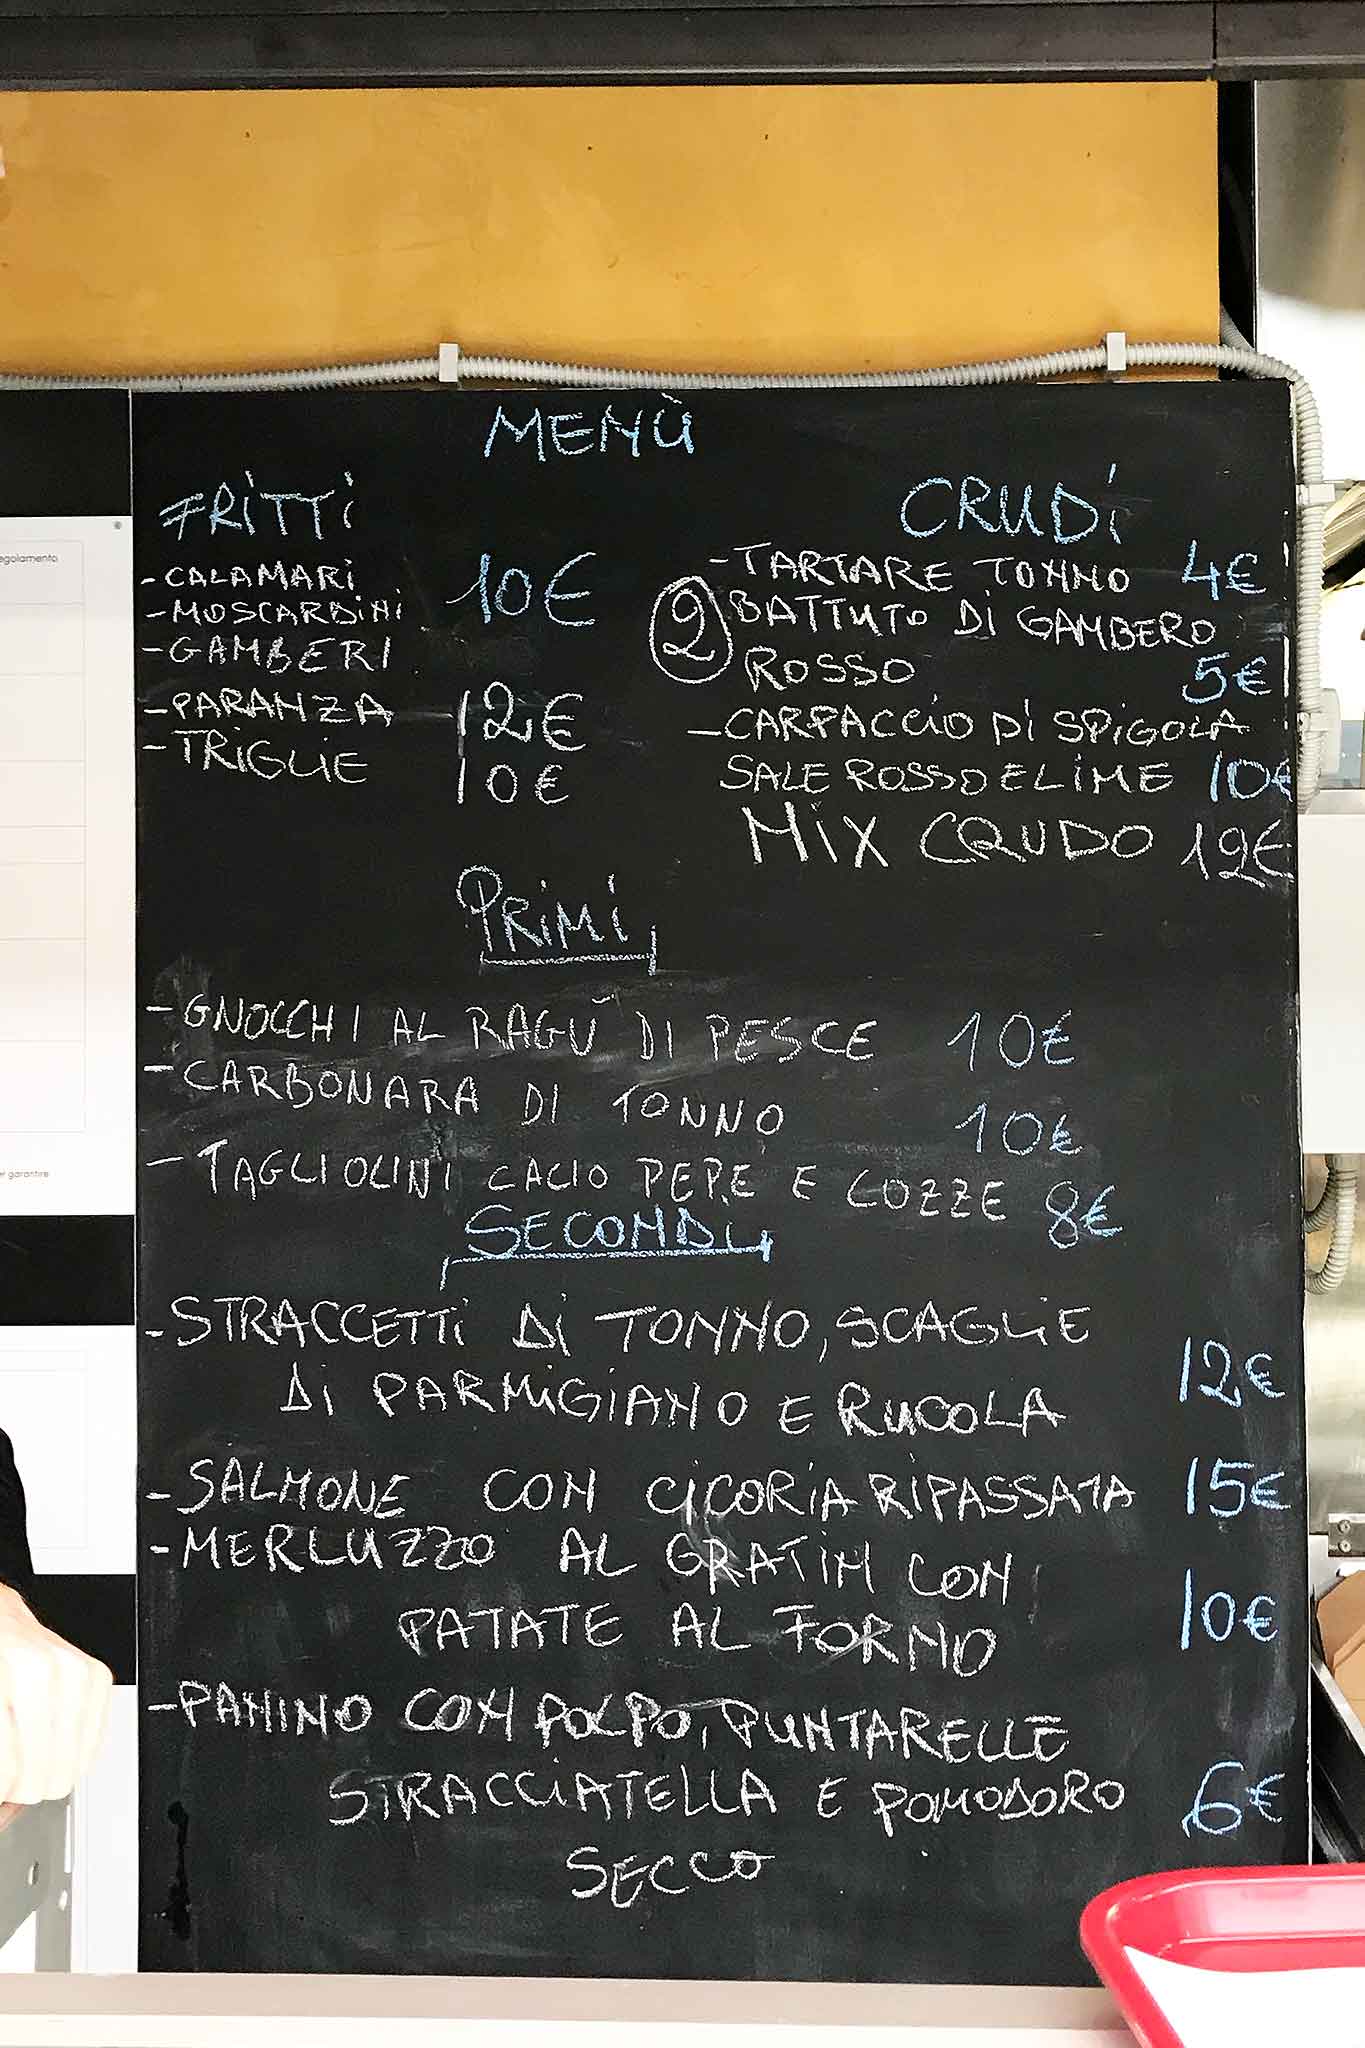 MENÙ
FRITTI
-CALAMARI
-MOSCARDINI
-GAMBERI
10€
-PARANZA 12€
-TRIGLIE 10€
CRUDI
-TARTARE TONNO 4€
2 BATTUTO DI GAMBERO
ROSSO 5€
-CARPACCIO DI SPIGOLA
SALE ROSSO E LIME 10€
MIX CRUDO 12€
PRIMI
-GNOCCHI AL RAGÙ DI PESCE 10€
-CARBONARA DI TONNO 10€
-TAGLIOLINI CACIO PEPE E COZZE 8€
SECONDI
-STRACCETTI DI TONNO, SCAGLIE
DI PARMIGIANO E RUCOLA 12€
-SALMONE CON CICORIA RIPASSATA 15€
-MERLUZZO AL GRATIN CON
PATATE AL FORNO 10€
-PANINO CON POLPO, PUNTARELLE
STRACCIATELLA E POMODORO 6€
SECCO
egolamento
er garantire